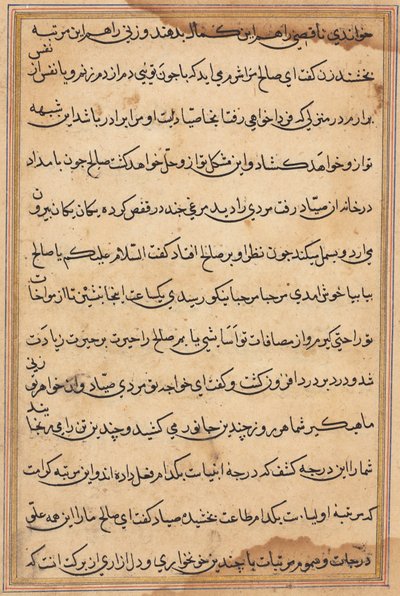 خواندی ناقصی را هم این کمال بدهند و زنی را هم این مرتبه
بخشند زن گفت ای صالح مرا شرم می آید که با چون تویی دم از دم زنم و یا نفس از نفس
برارم در منزلی که فردا خواهی رفت انجا صیادیست او مرا برادر باشد این شبهه
تو از و خواهد کشاد و این مشکل تو از و حل خواهد کشت صالح چون بامداد
در خانه ان صیاد رفت مردی را دید مرغی چند در قفص کرده یکان یکان بیرون
می ارد و بسمل میکند چون نظر او بر صالح افتاد گفت السلام علیکم یا صالح
بیا بیا خوش آمدی مرحبا مرحبا نیکو رسیدی یکساعت اینجا بنشین تا از مواخات
تو راحتی کیرم و از مصافات تو آسایشی یابم صالح را حیرت بر حیرت زیادت
شد و درد بر درد افزون کشت و گفت ای خواجه تو مردی صیاد و ان خواهر تو زنی
ماهیکیر شما هر روز چندین جانور می کشید و چندین تن را می رنجانید
شما را این درجه کشف که درجه انبیاست بکدام فعل داده اند و این مرتبه کرامت
که مرتبه اولیاست بکدام طاعت بخشیده صیاد گفت ای صالح ما را این همه علو
درجات و سمو مرتبات با چندین خونخواری و دل ازاری از برکت انست که